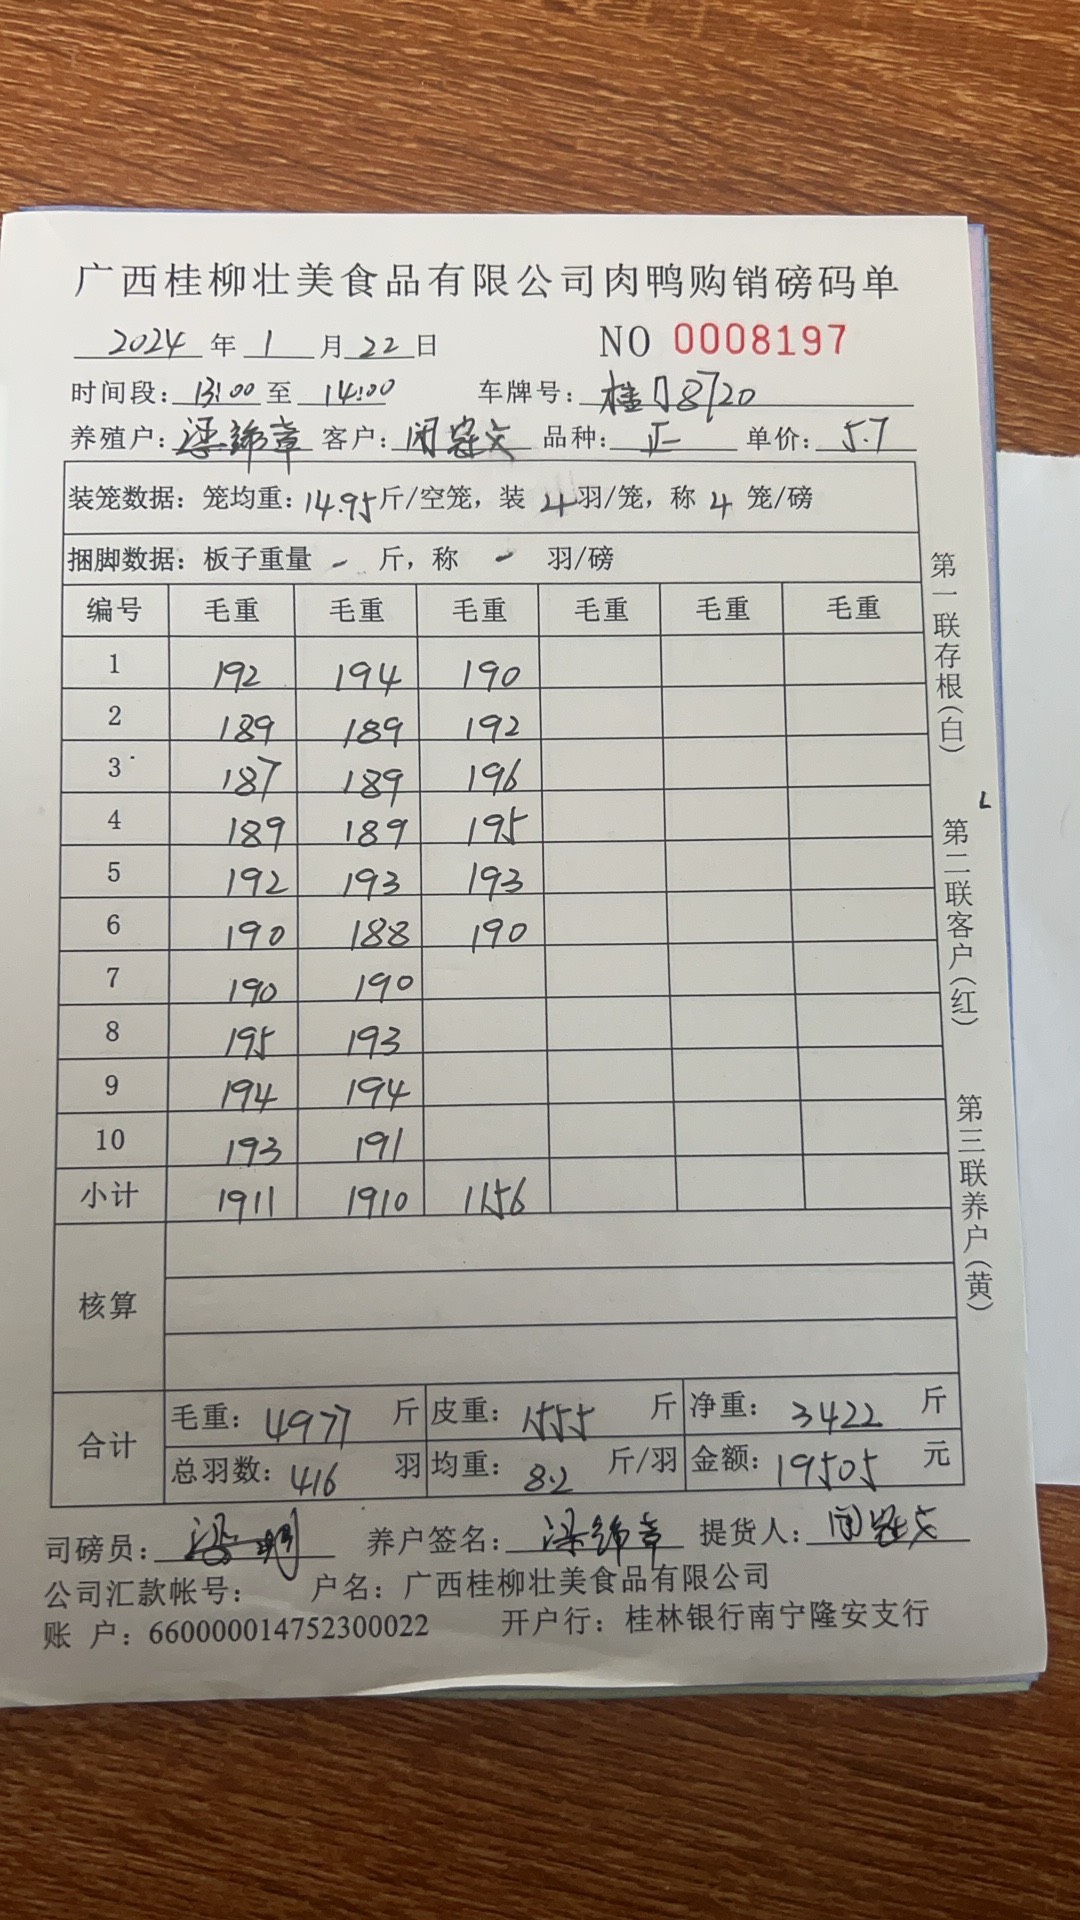 广西桂柳壮美食品有限公司肉鸭购销磅码单
2024年1月22日 NO 0008197
时间段:13:00至14:00 车牌号:桂 8720
养殖户:梁锦章 客户: 品种:正 单价:5.7
装笼数据:笼均重:14.95斤/空笼,装4羽/笼,称4笼/磅
捆脚数据:板子重量-斤,称-羽/磅
编号 毛重 毛重 毛重 毛重 毛重 毛重
1 192 194 190
2 189 189 192
3 187 189 196
4 189 189 195
5 192 193 193
6 190 188 190
7 190 190
8 195 193
9 194 194
10 193 191
小计 1911 1910 1156
核算
合计
毛重:4977斤 皮重:1555斤 净重:3422斤
总羽数:416羽 均重:8.2斤/羽 金额:19505元
司磅员: 养户签名:梁锦章 提货人:
公司汇款帐号: 户名:广西桂柳壮美食品有限公司
账 户:660000014752300022 开户行:桂林银行南宁隆安支行
第一联存根(白)
第二联客户(红)
第三联养户(黄)